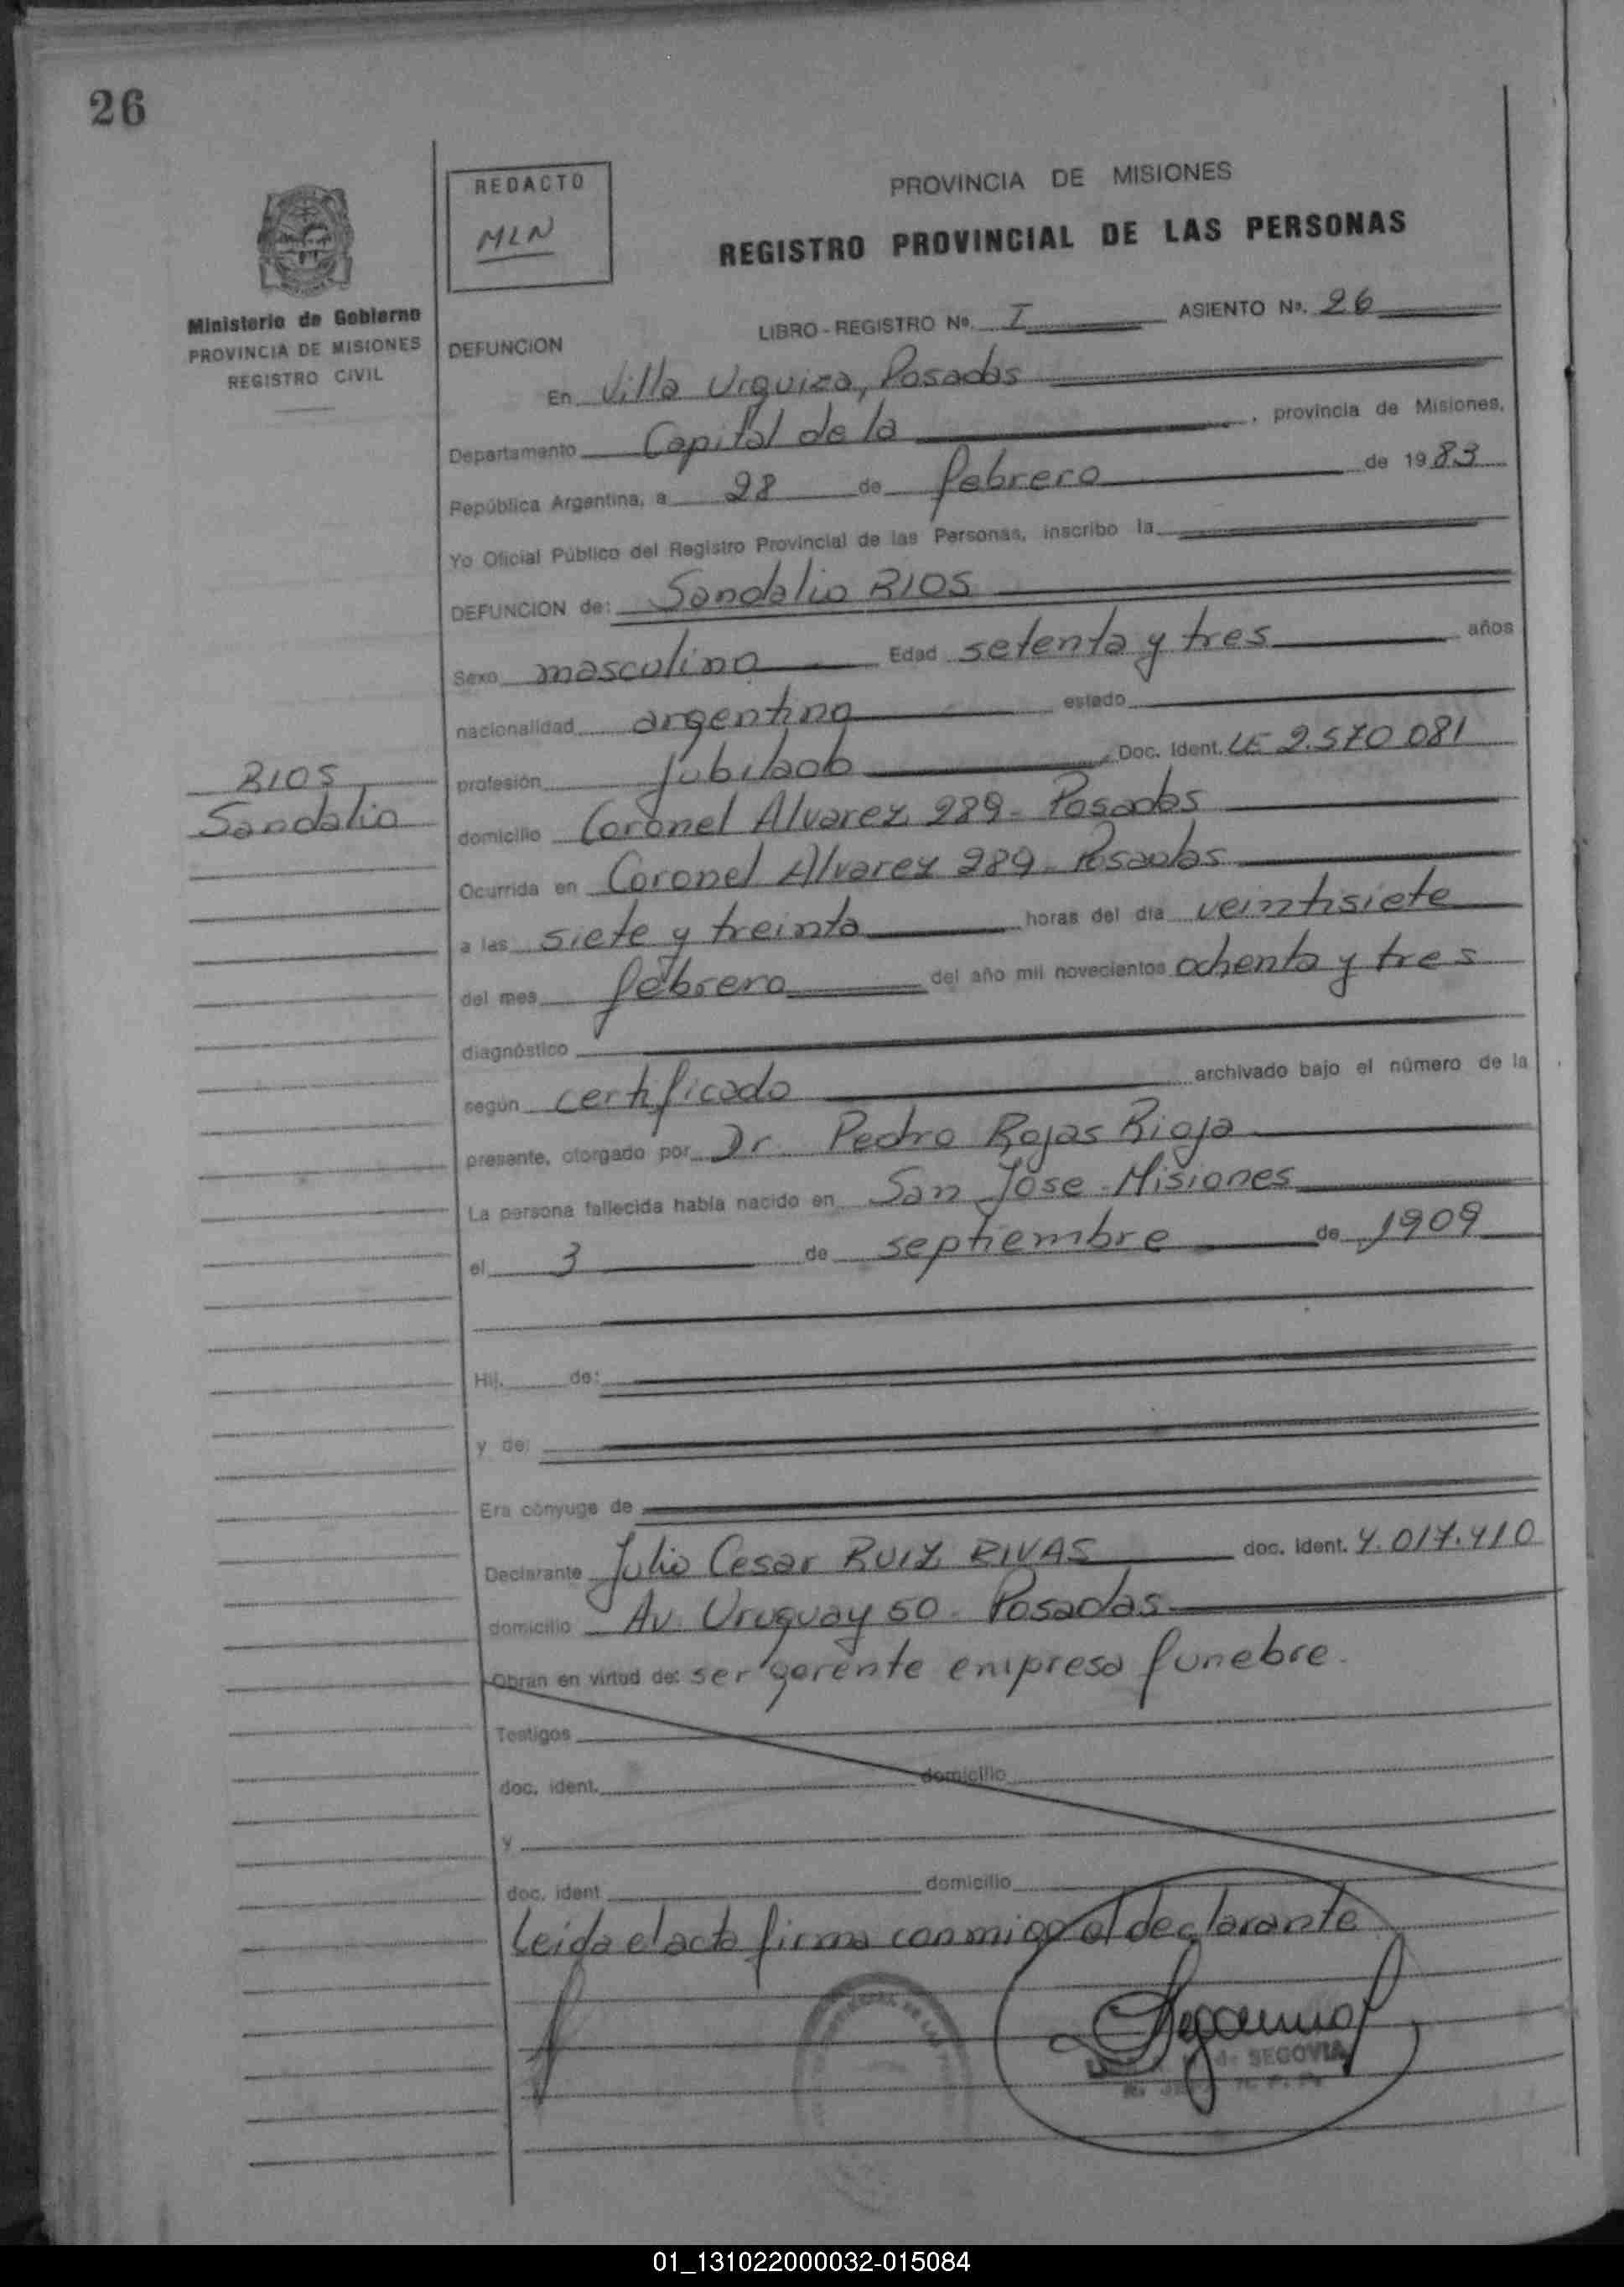 26
REDACTO
MLN
PROVINCIA DE MISIONES
REGISTRO PROVINCIAL DE LAS PERSONAS
Ministerio de Gobierno
PROVINCIA DE MISIONES
REGISTRO CIVIL
LIBRO - REGISTRO No. I ASIENTO No. 26
DEFUNCION
En Villa Urquiza, Posadas
Departamento Capital de la , provincia de Misiones,
República Argentina, a 28 de febrero de 1983
Yo Oficial Público del Registro Provincial de las Personas, inscribo la
DEFUNCION de: Sandalio RIOS
Sexo masculino Edad setenta y tres años
nacionalidad argentina estado
RIOS
Sandalio
profesión jubilado Doc. Ident. LE 2.570.081
domicilio Coronel Alvarez 289 - Posadas
Ocurrida en Coronel Alvarez 289 - Posadas
a las siete y treinta horas del día veintisiete
del mes febrero del año mil novecientos ochenta y tres
diagnóstico
según certificado archivado bajo el número de la
presente, otorgado por Dr. Pedro Rojas Rioja
La persona fallecida había nacido en San Jose - Misiones
el 3 de septiembre de 1909
Hij. de:
y de:
Era cónyuge de
Declarante Julio Cesar RUIZ RIVAS doc. ident. 4.017.410
domicilio Av. Uruguay 50 - Posadas
Obran en virtud de: ser gerente empresa funebre.
Testigos
doc. ident. domicilio
y
doc. ident domicilio
Leida el acta firma conmigo el declarante
de SEGOVIA
01_131022000032-015084